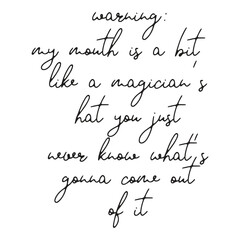 warning:
my mouth is a bit
like a magician's
hat you just
never know what's
gonna come out
of it